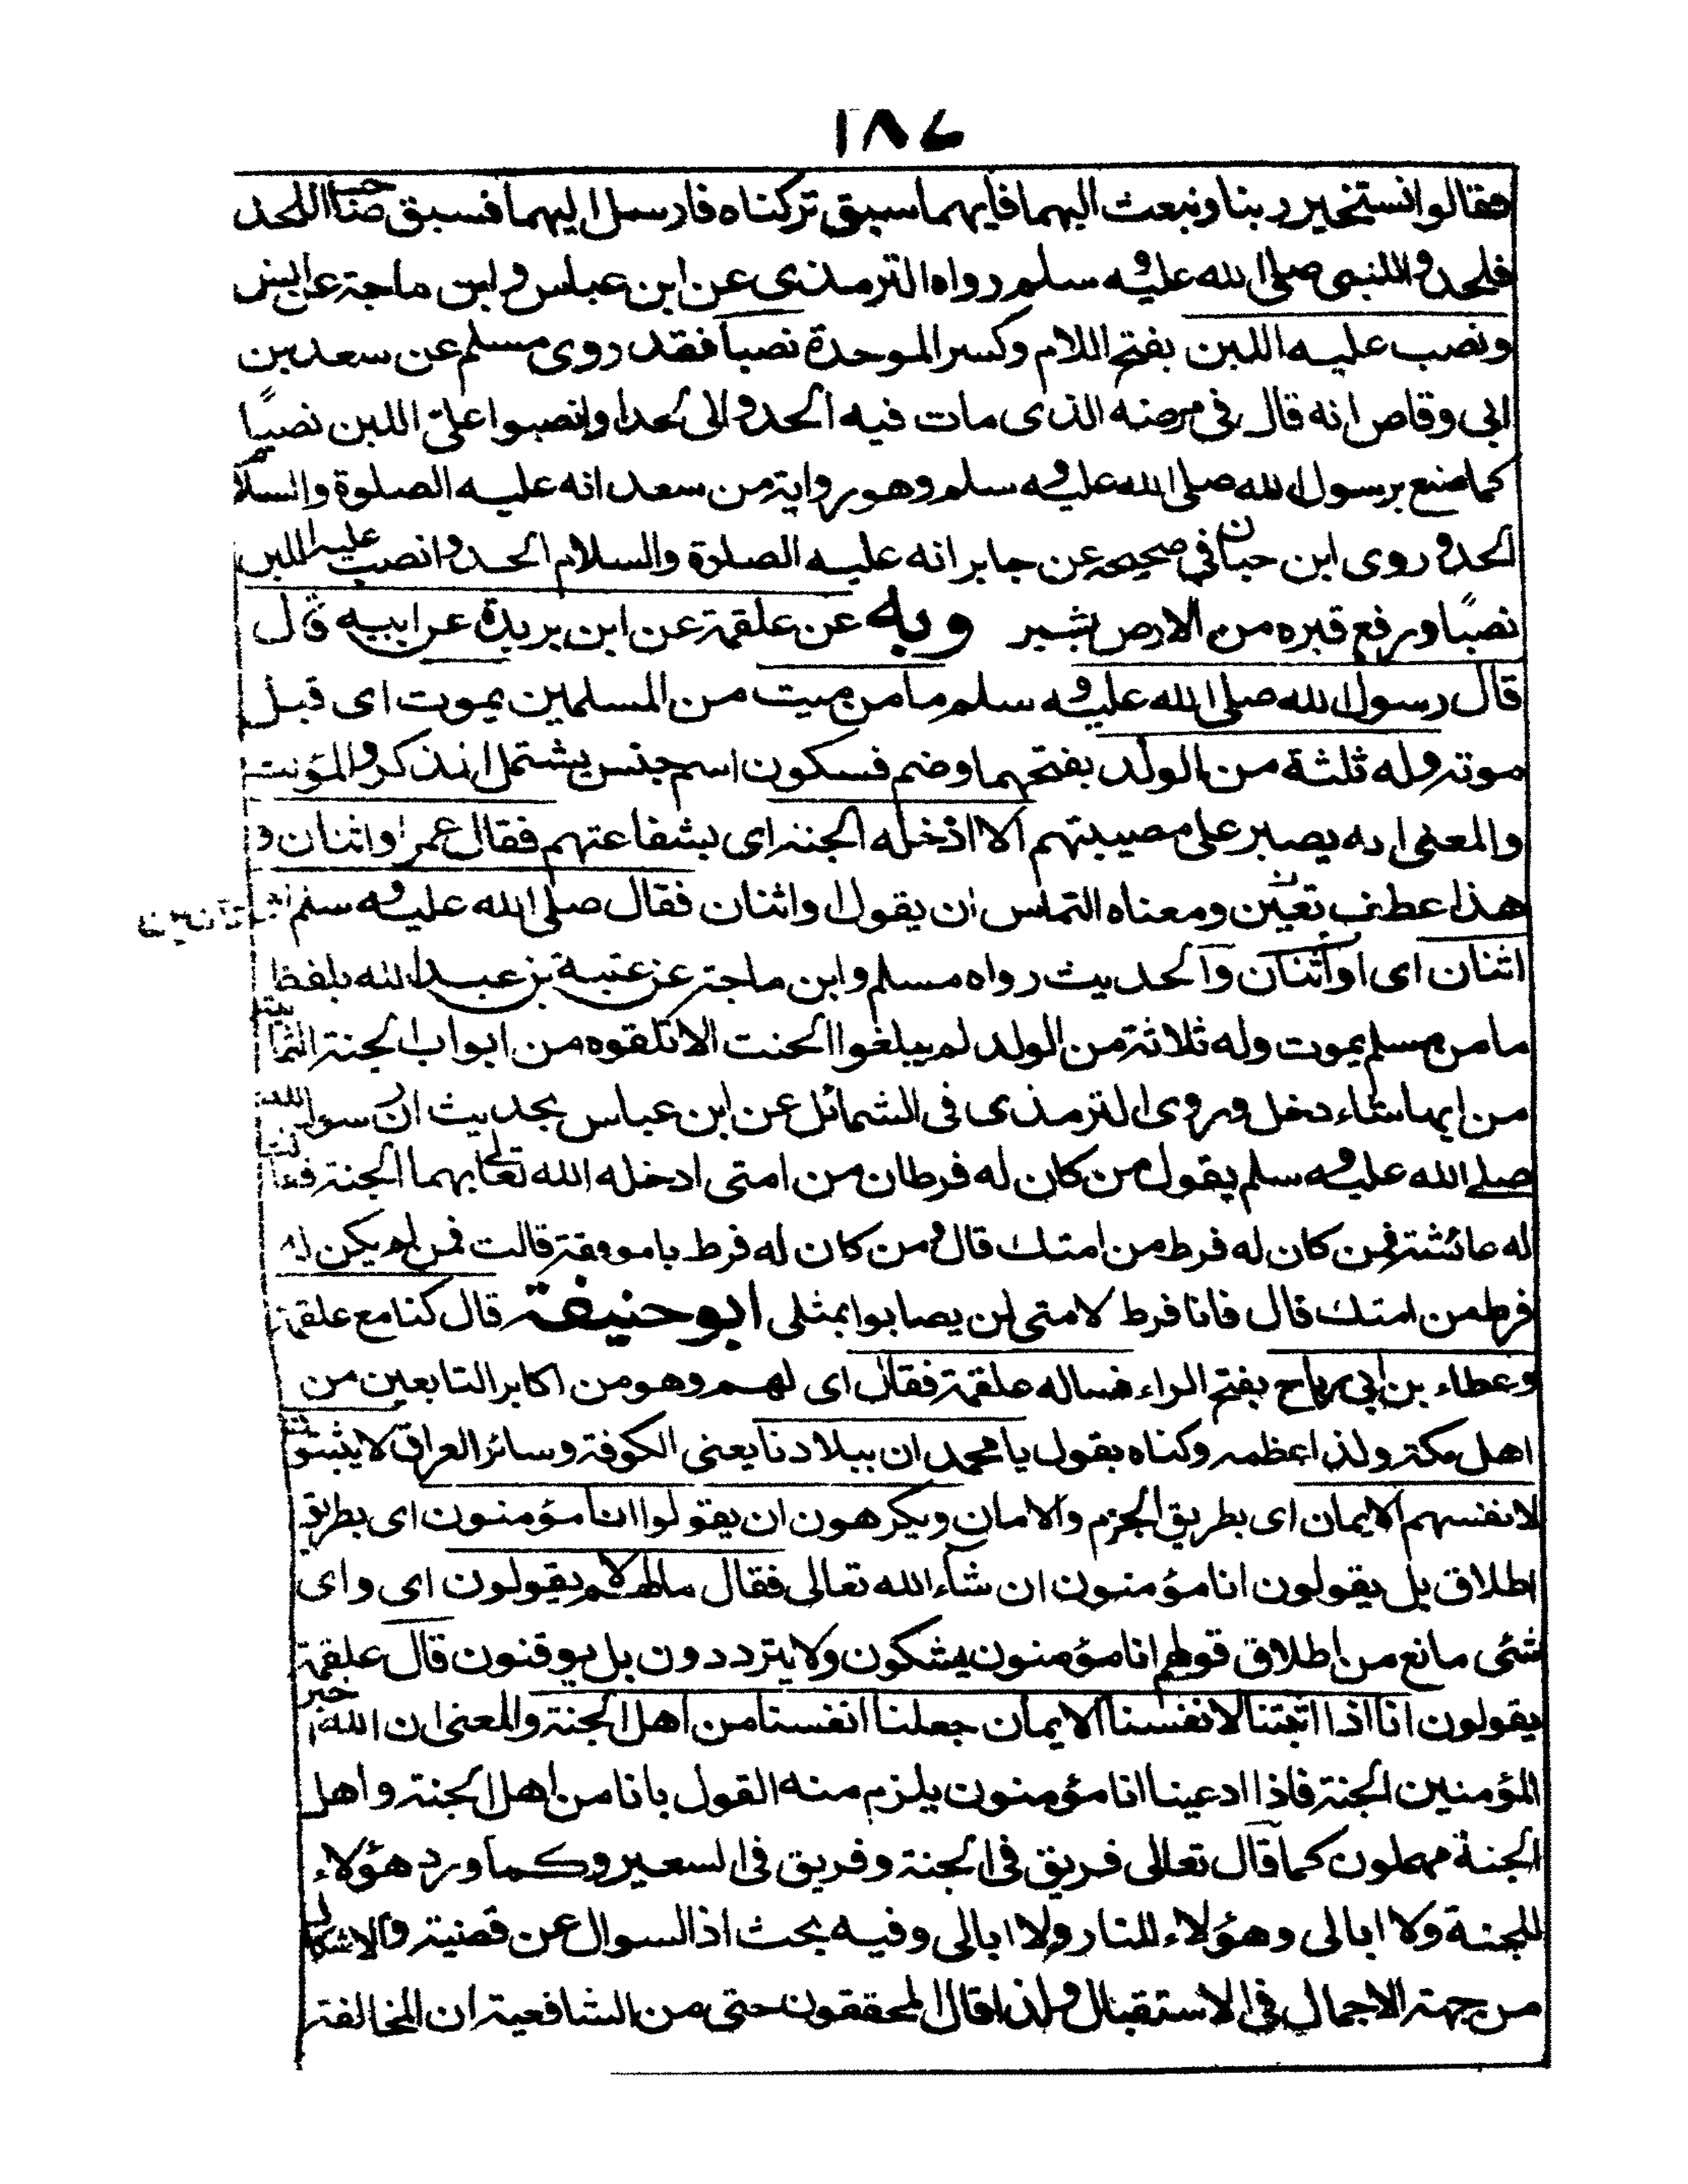 ١٨٤
فقالوا نستخير ربنا ونبعث اليهما فايهما سبق تركناه فارسل اليهما فسبق صاحب اللحد
فلحدوا للنبى صلى الله عليه وسلم رواه الترمذى عن ابن عباس وابن ماجة عن
ونصب عليه اللبن بفتح اللام وكسر الموحدة نصبا فقد روى مسلم عن سعد بن
ابى وقاص انه قال فى مرضه الذى مات فيه الحدوا لى لحدا وانصبوا على اللبن نصبًا
كما صنع برسول الله صلى الله عليه وسلم وهو رواية من سعد انه عليه الصلوة والسلام
الحد وروى ابن حبان فى صحيحه عن جابر انه عليه الصلوة والسلام الحد وانصب عليه اللبن
نصبًا ورفع قبره من الارض بشبر وبه عن علقمة عن ابن بريدة عن ابيه قال
قال رسول الله صلى الله عليه وسلم ما من ميت من المسلمين يموت اى قبل
موته وله ثلثة من الولد بفتحهما وضم فسكون اسم جنس يشتمل المذكر والمؤنث
والمعنى انه يصبر على مصيبتهم الا ادخله الجنة اى بشفاعتهم فقال عمر او اثنان و
هذا عطف تعيين ومعناه التماس ان يقول او اثنان فقال صلى الله عليه وسلم
اثنان اى او اثنان والحديث رواه مسلم وابن ماجة عن عتبة بن عبد الله بلفظ
ما من مسلم يموت وله ثلاثة من الولد لم يبلغوا الحنث الا تلقوه من ابواب الجنة الثمانية
من ايها شاء دخل وروى الترمذى فى الشمائل عن ابن عباس بحديث ان رسول الله
صلى الله عليه وسلم يقول من كان له فرطان من امتى ادخله الله تعالى بهما الجنة فقالت
له عائشة فمن كان له فرط من امتك قال ومن كان له فرط يا موفقة قالت فمن لم يكن له
فرط من امتك قال فانا فرط لامتى لن يصابوا بمثلى ابو حنيفة قال كنا مع علقمة
وعطاء بن ابى رباح بفتح الراء فساله علقمة فقال اى لهم وهو من اكابر التابعين من
اهل مكة ولذا عظمه وكناه بقول يا محمد ان ببلادنا يعنى الكوفة وسائر العراق لا يثبتون
لانفسهم الايمان اى بطريق الجزم والامان ويكرهون ان يقولوا انا مؤمنون اى بطريق
اطلاق بل يقولون انا مؤمنون ان شاء الله تعالى فقال مالهم لا يقولون اى واى
شئى مانع من اطلاق قولهم انا مؤمنون يشكون ولا يترددون بل يوقنون قال علقمة
يقولون انا اذا اثبتنا لانفسنا الايمان جعلنا انفسنا من اهل الجنة والمعنى ان الله اخبر
المؤمنين الجنة فاذا ادعينا انا مؤمنون يلزم منه القول بانا من اهل الجنة واهل
الجنة مهملون كما قال تعالى فريق فى الجنة وفريق فى السعير وكما ورد هؤلاء
للجنة ولا ابالى وهؤلاء للنار ولا ابالى وفيه بحث اذ السوال عن قضية والاشكال
من جهة الاجمال فى الاستقبال ولذا قال المحققون حتى من الشافعية ان المخالفة